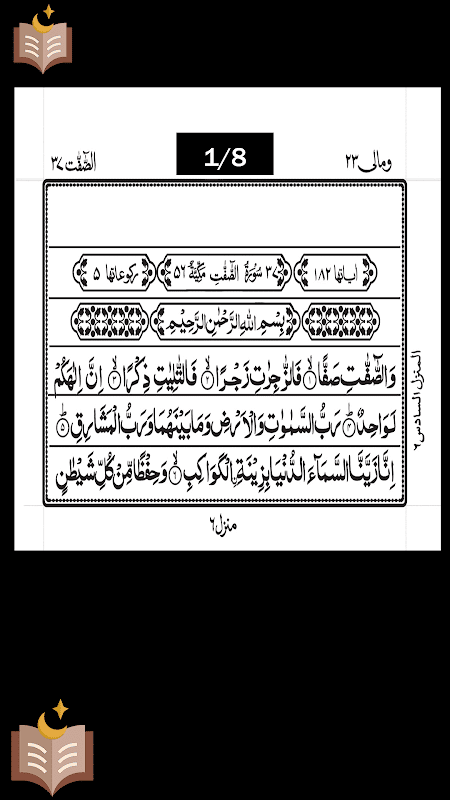 الصّٰٓفّٰت ٣٧
1/8
ومالی ٢٣
اٰیاتها ١٨٢
٣٧ سُوْرَةُ الصّٰٓفّٰتِ مَكِّیَّةٌ ٥٦
رکوعاتها ٥
بِسْمِ اللّٰهِ الرَّحْمٰنِ الرَّحِیْمِ
وَالصّٰٓفّٰتِ صَفًّا ۙ﴿١﴾ فَالزّٰجِرٰتِ زَجْرًا ۙ﴿٢﴾ فَالتّٰلِیٰتِ ذِكْرًا ۙ﴿٣﴾ اِنَّ اِلٰهَكُمْ
لَوَاحِدٌ ؕ﴿٤﴾ رَبُّ السَّمٰوٰتِ وَالْاَرْضِ وَمَا بَیْنَهُمَا وَرَبُّ الْمَشَارِقِ ؕ﴿٥﴾
اِنَّا زَیَّنَّا السَّمَآءَ الدُّنْیَا بِزِیْنَةِ ۣالْكَوَاكِبِ ۙ﴿٦﴾ وَحِفْظًا مِّنْ كُلِّ شَیْطٰنٍ
المنزل السادس ٦
منزل ٦